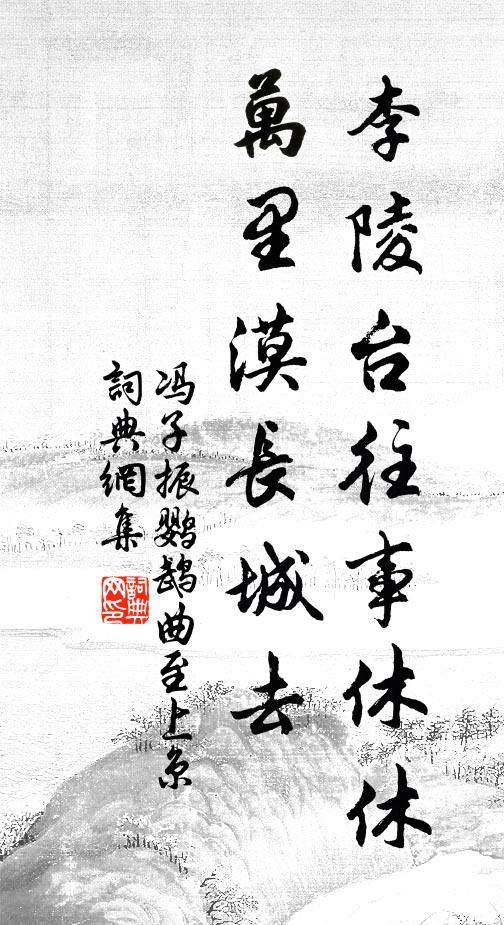 李陵台往事休休
萬里漠長城去
冯子振鹦鹉曲至上京
詞典網集
詞典